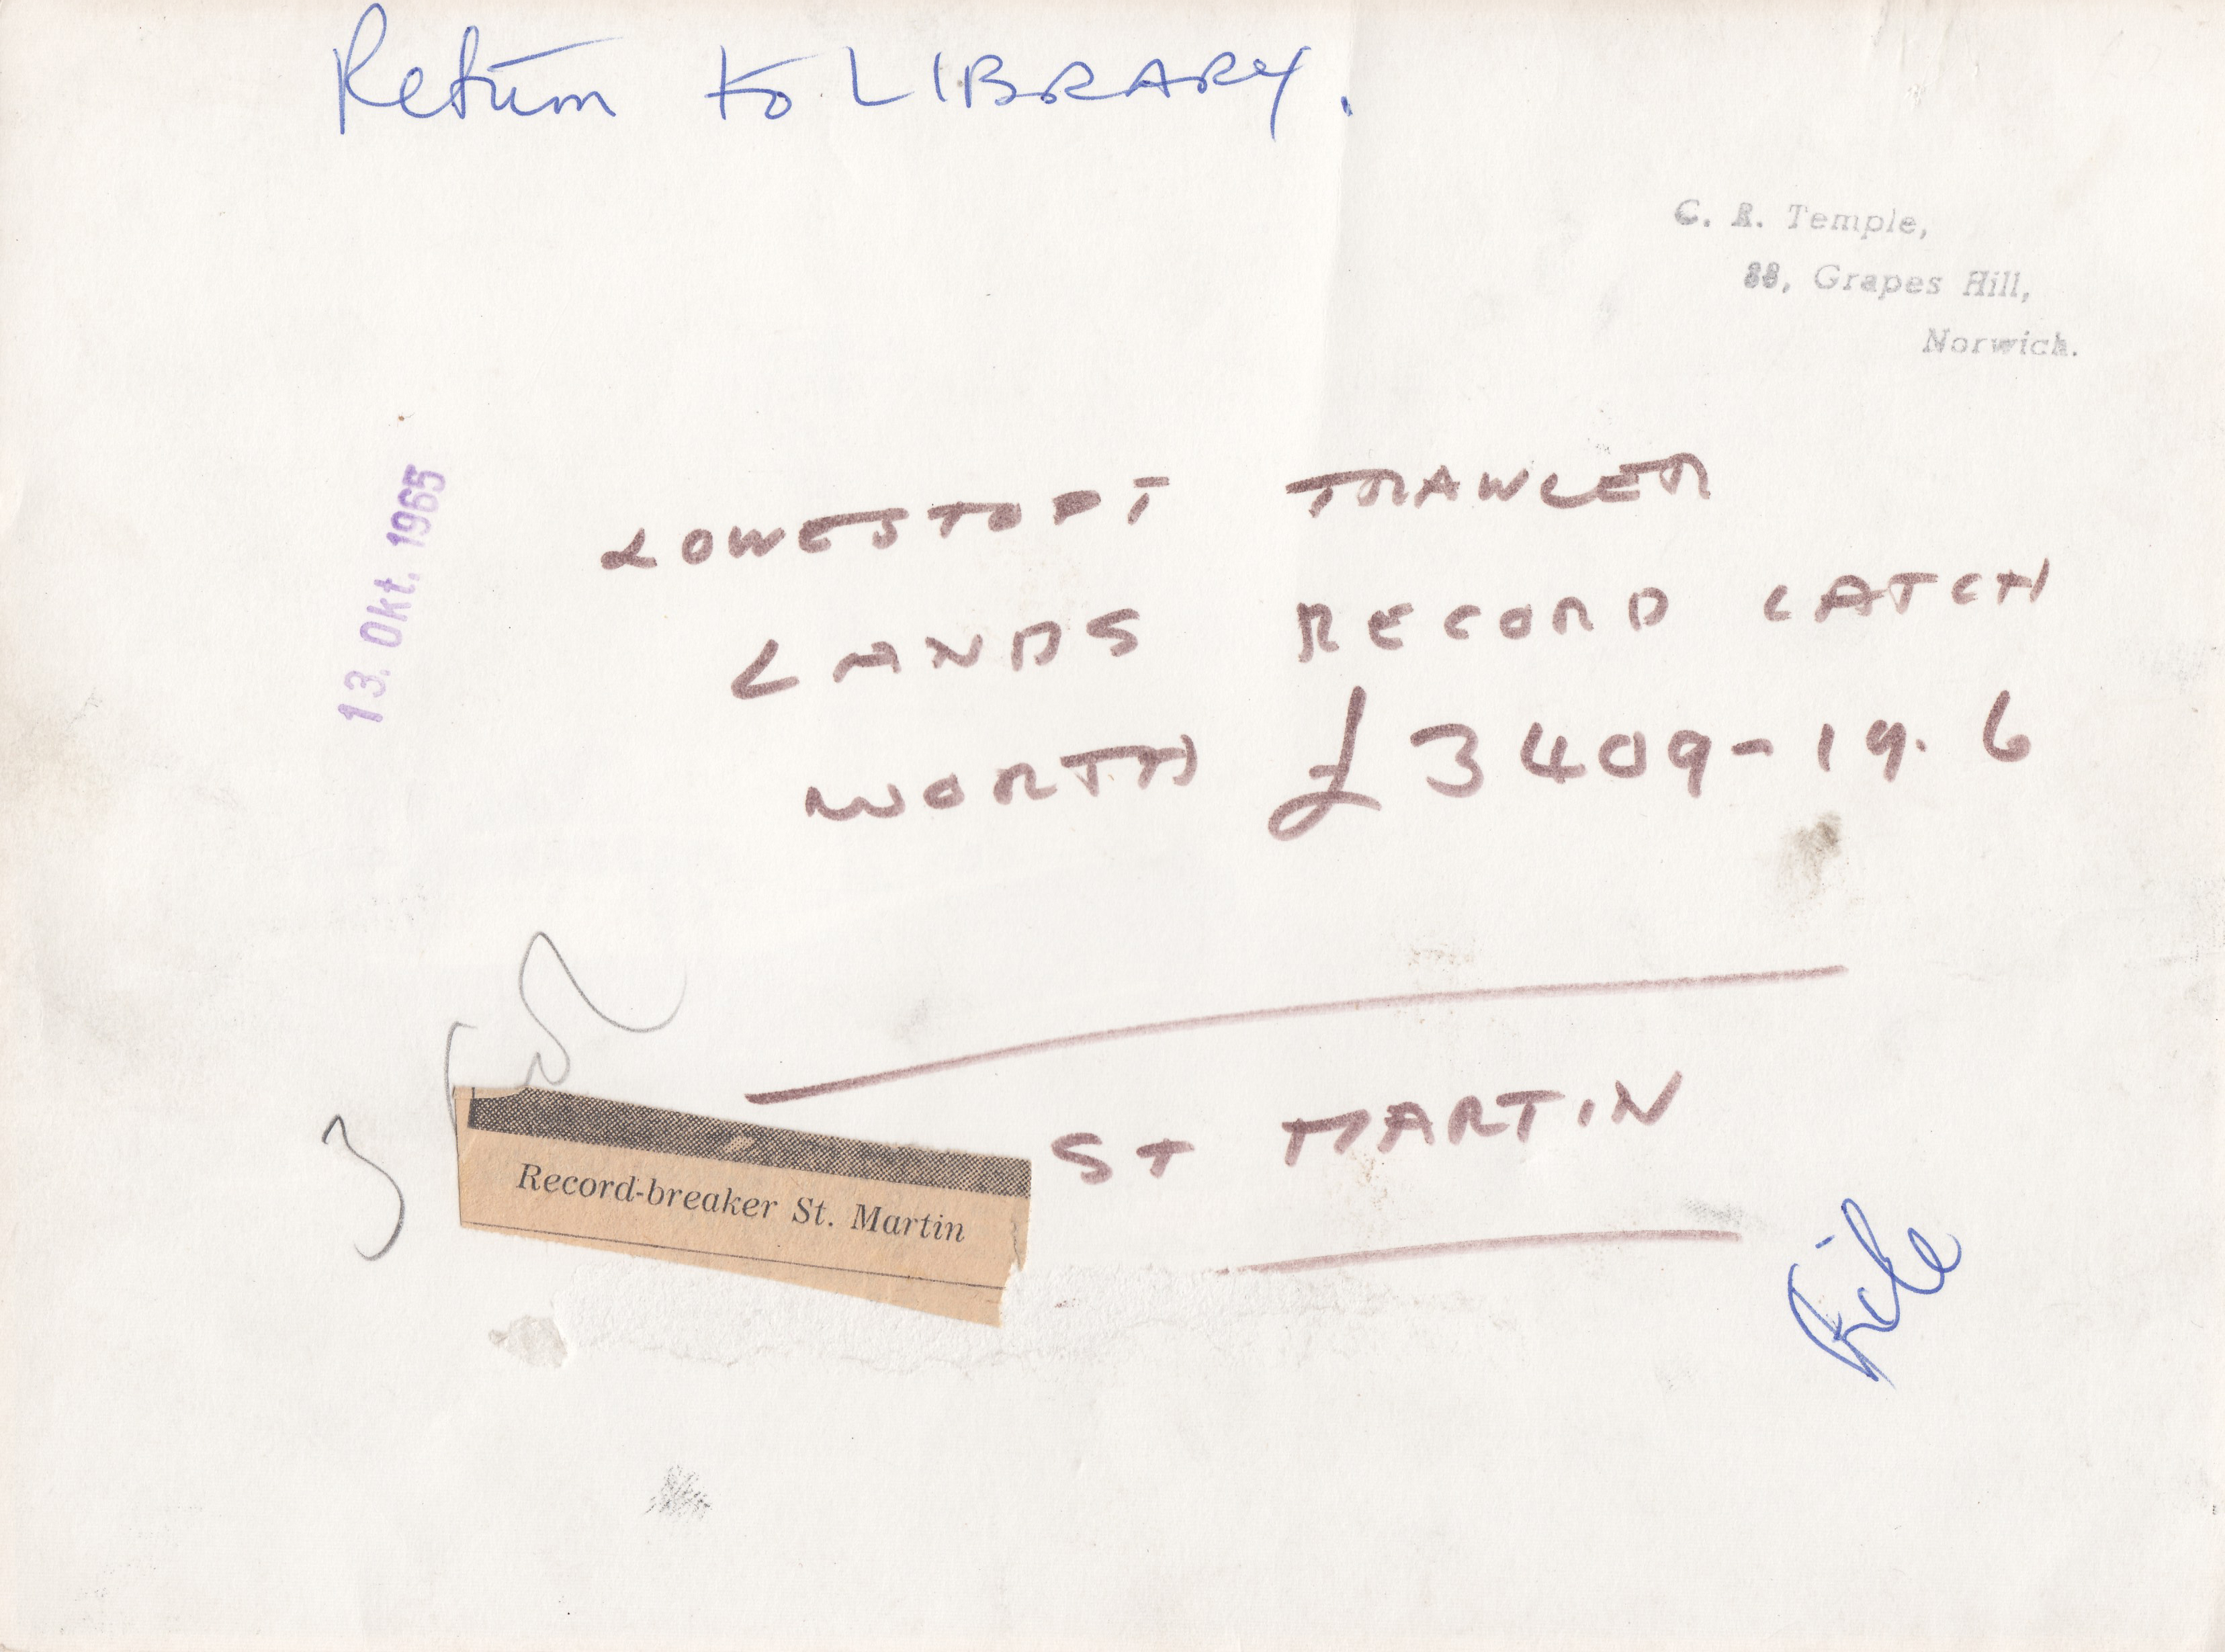 Return to LIBRARY.
C. R. Temple,
88, Grapes Hill,
Norwich.
13. Okt. 1965
LOWESTOFT TRAWLER
LANDS RECORD CATCH
WORTH £3409-19.6
ST MARTIN
Record-breaker St. Martin
File